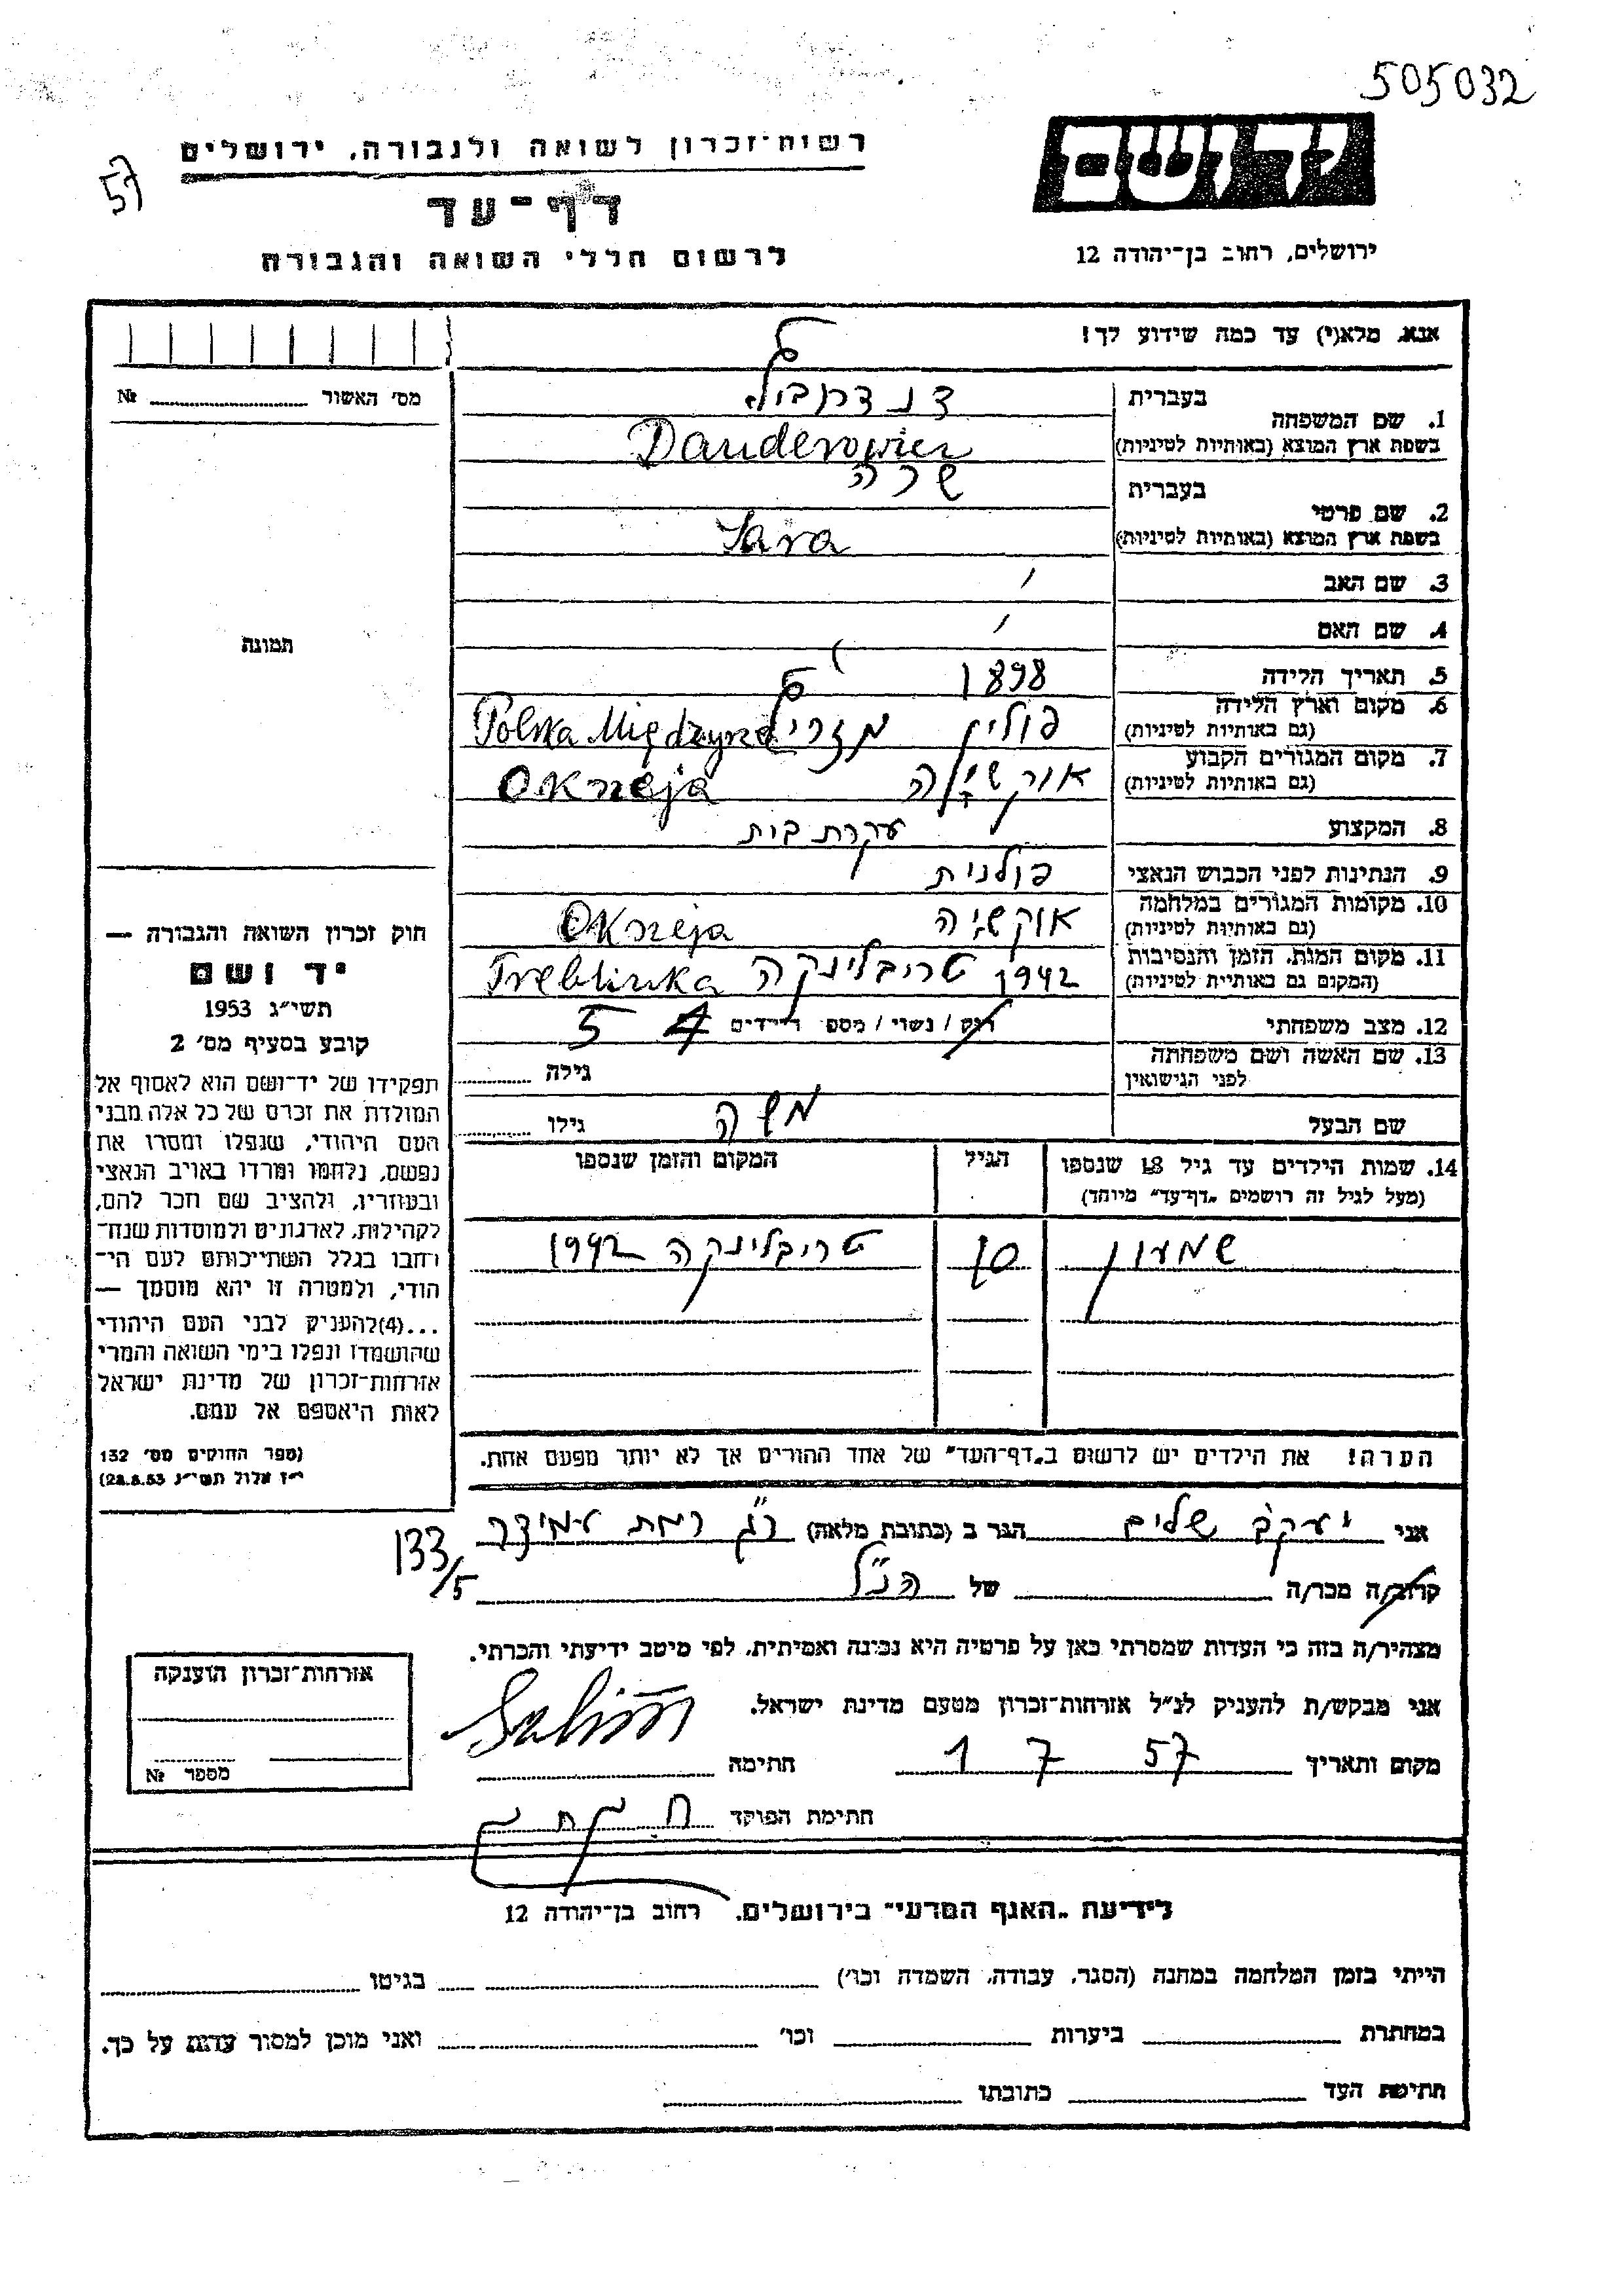 505032
57
יד ושם
רשות־זכרון לשואה ולגבורה, ירושלים
דף־עד
לרשום חללי השואה והגבורה
ירושלים, רחוב בן־יהודה 12
אנא, מלא(י) עד כמה שידוע לך!
מס׳ האשור № 
1. שם המשפחה
בעברית
בשפת ארץ המוצא (באותיות לטיניות) Danderowicz
2. שם פרטי
בעברית שרה
בשפת ארץ המוצא (באותיות לטיניות) Sara
3. שם האב
4. שם האם
תמונה
5. תאריך הלידה 1898
6. מקום וארץ הלידה (גם באותיות לטיניות) פולין Polska
7. מקום המגורים הקבוע (גם באותיות לטיניות) Okrzeja
8. המקצוע עקרת בית
9. הנתינות לפני הכבוש הנאצי פולנית
10. מקומות המגורים במלחמה (גם באותיות לטיניות) אוקשיה Okrzeja
11. מקום המות, הזמן והנסיבות (המקום גם באותיות לטיניות) 1942 טריבלינקה Treblinka
12. מצב משפחתי רוק / נשוי / מספ׳ הילדים 4 5
13. שם האשה ושם משפחתה לפני הנישואין גילה
שם הבעל משה גילו
14. שמות הילדים עד גיל 18 שנספו
(מעל לגיל זה רושמים „דף־עד״ מיוחד)
הגיל
המקום והזמן שנספו
שמעון 10 טריבלינקה 1942
הערה! את הילדים יש לרשום ב„דף־העד״ של אחד ההורים אך לא יותר מפעם אחת.
חוק זכרון השואה והגבורה —
יד ושם
תשי״ג 1953
קובע בסעיף מס׳ 2
תפקידו של יד־ושם הוא לאסוף אל
המולדת את זכרם של כל אלה מבני
העם היהודי, שנפלו ומסרו את
נפשם, נלחמו ומרדו באויב הנאצי
ובעוזריו, ולהציב שם וזכר להם,
לקהילות, לארגונים ולמוסדות שנח־
רחבו בגלל השתייכותם לעם הי־
הודי, ולמטרה זו יהא מוסמך —
...(4)להעניק לבני העם היהודי
שהושמדו ונפלו בימי השואה והמרי
אזרחות־זכרון של מדינת ישראל
לאות היאספם אל עמם.
(ספר החוקים מס׳ 132
י״ז אלול תשי״ג 28.8.53)
אני יעקב שלים הגר ב (כתובת מלאה) ר״ג רמת עמידר
133/5
קרוב/ה מכר/ה של הנ״ל
מצהיר/ה בזה כי העדות שמסרתי כאן על פרטיה היא נכונה ואמיתית, לפי מיטב ידיעתי והכרתי.
אני מבקש/ת להעניק לנ״ל אזרחות־זכרון מטעם מדינת ישראל.
מקום ותאריך 1 7 57 חתימה
חתימת הפוקד
אזרחות־זכרון הוענקה
מספר №
לידיעת „האגף המדעי״ בירושלים, רחוב בן־יהודה 12
הייתי בזמן המלחמה במחנה (הסגר, עבודה, השמדה וכו׳) בגיטו
במחתרת ביערות וכו׳ ואני מוכן למסור עדות על כך.
חתימת העד כתובתו